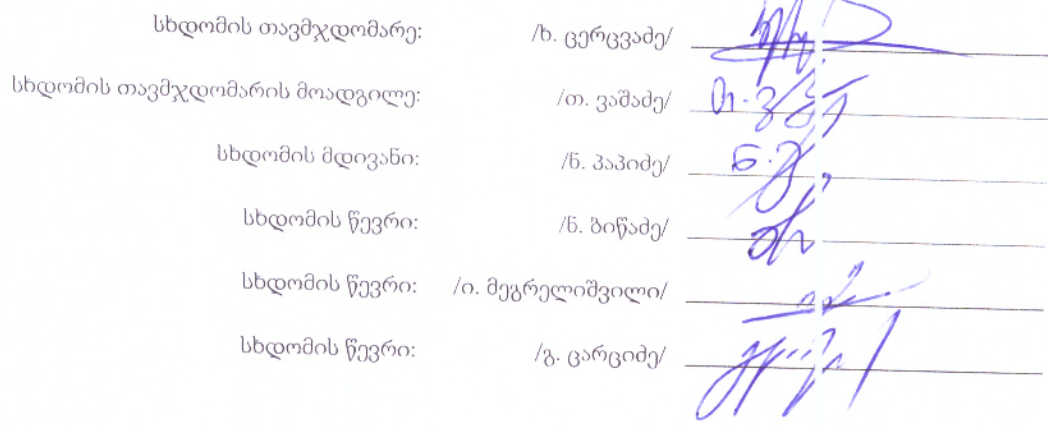 სხდომის თავმჯდომარე: /ხ. ცერცვაძე/
სხდომის თავმჯდომარის მოადგილე: /თ. ვაშაძე/
სხდომის მდივანი: /ნ. პაპიძე/
სხდომის წევრი: /ნ. ბიწაძე/
სხდომის წევრი: /ი. მეგრელიშვილი/
სხდომის წევრი: /გ. ცარციძე/